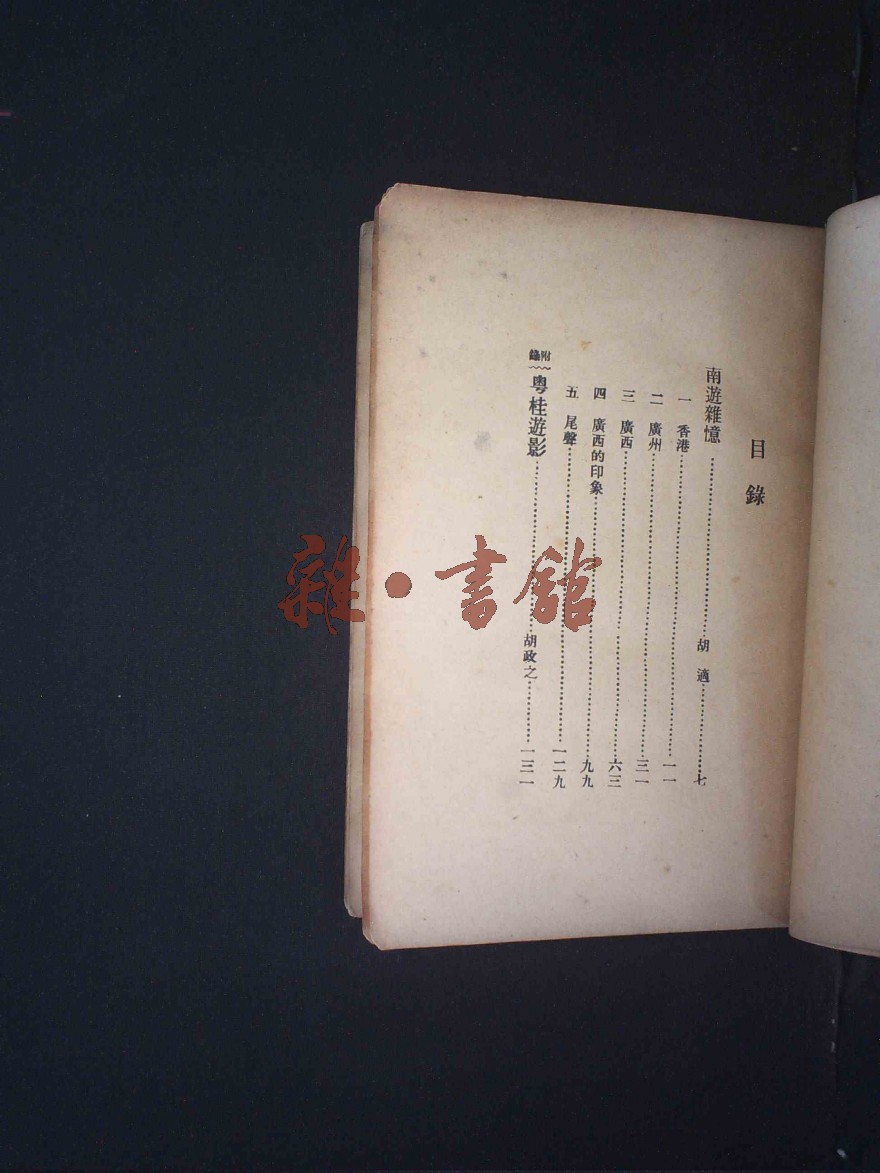 目錄
南遊雜憶……胡適……七
一 香港……一一
二 廣州……三一
三 廣西……六三
四 廣西的印象……九九
五 尾聲……一二九
附錄 粵桂遊影……胡政之……一三一
雜·書館